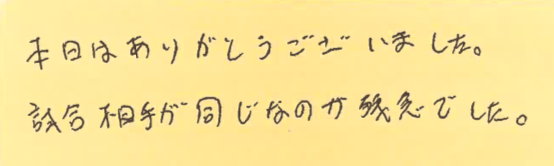 本日はありがとうございました。
試合相手が同じなのが残念でした。